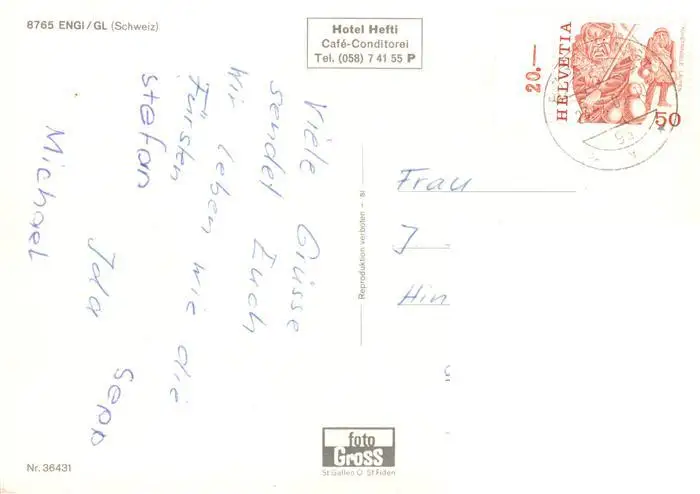 8765 ENGI/GL (Schweiz)
Hotel Hefti
Café-Conditorei
Tel. (058) 7 41 55 P
20.—
HELVETIA
50
Viele Grüsse
sendet Euch
Wir leben wie die
Fürsten
Stefan
Sepp
Ida
Michael
Frau
J
Hin
Reproduktion verboten – si
foto
Gross
St Gallen O St Fiden
Nr. 36431